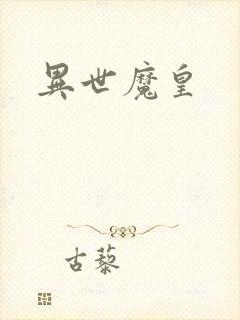 異世魔皇
古藜